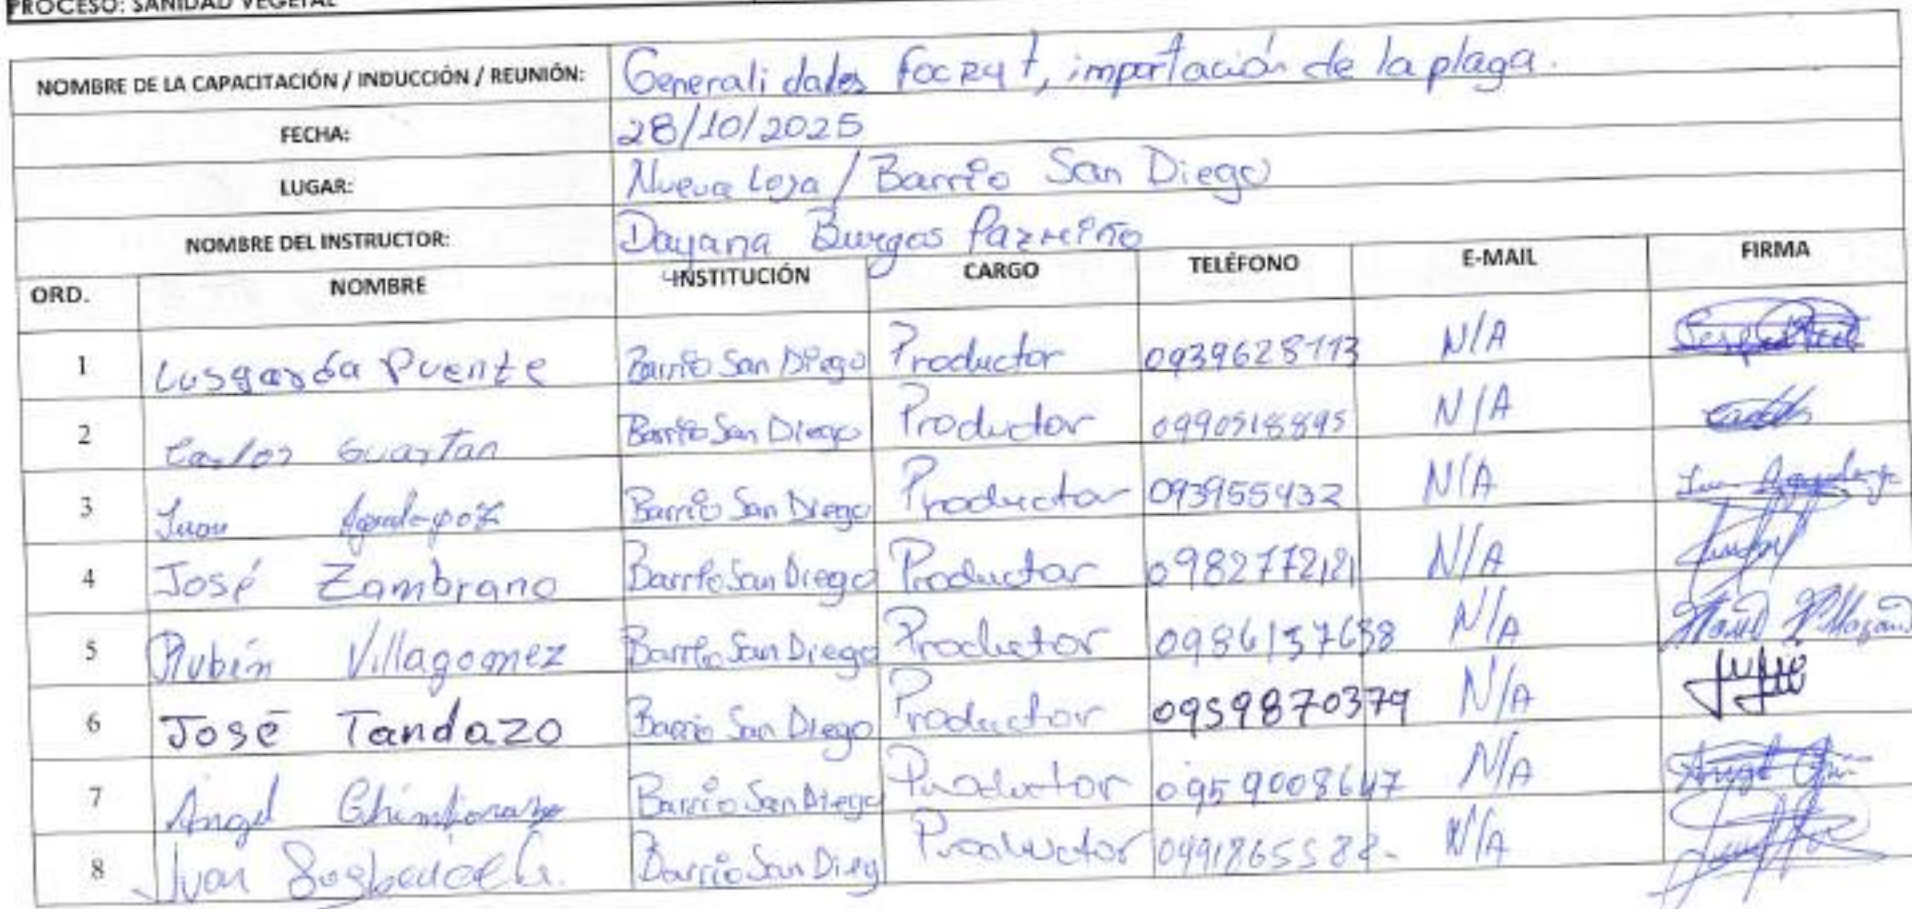 PROCESO: SANIDAD VEGETAL
NOMBRE DE LA CAPACITACIÓN / INDUCCIÓN / REUNIÓN: Generalidades FocR4t, importación de la plaga.
FECHA: 28/10/2025
LUGAR: Nueva Loja / Barrio San Diego
NOMBRE DEL INSTRUCTOR: Dayana Burgos Pazmiño
ORD. NOMBRE INSTITUCIÓN CARGO TELÉFONO E-MAIL FIRMA
1 Lusgarda Puente Barrio San Diego Productor 0939628113 N/A
2 Carlos Guartan Barrio San Diego Productor 0990518895 N/A
3 Juan Barrio San Diego Productor 093955432 N/A
4 José Zambrano Barrio San Diego Productor 0982772121 N/A
5 Rubén Villagomez Barrio San Diego Productor 0986137638 N/A
6 José Tandazo Barrio San Diego Productor 0959870379 N/A
7 Angel Chimborazo Barrio San Diego Productor 0959008647 N/A
8 Juan Barrio San Dieg Productor N/A